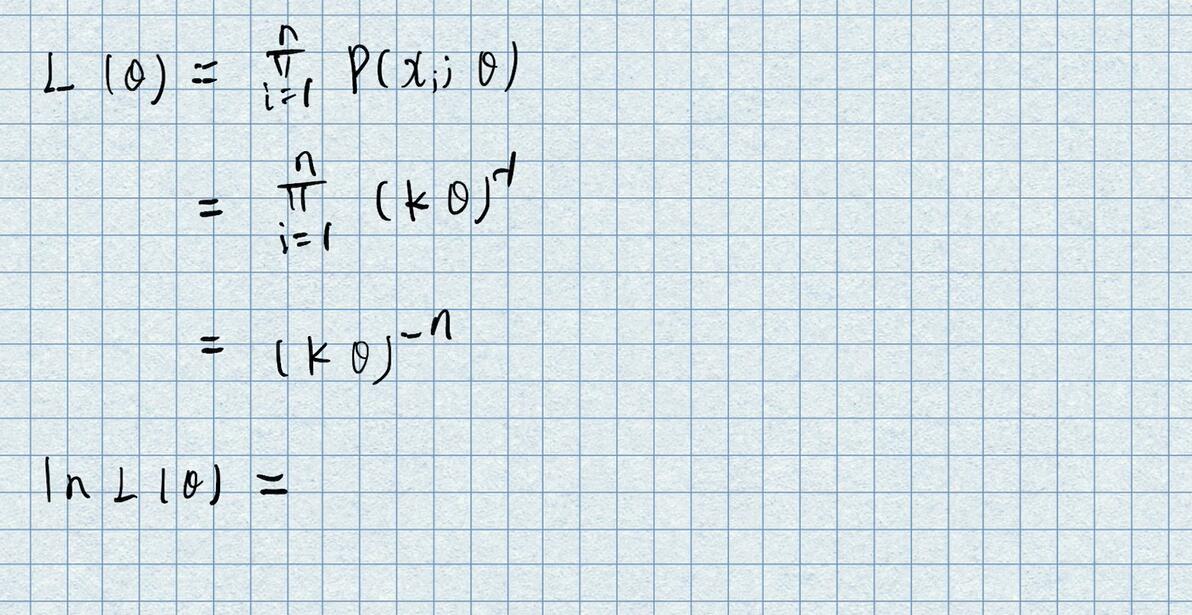 L(θ) = ∏_{i=1}^{n} P(x_i; θ)
= ∏_{i=1}^{n} (kθ)^{-1}
= (kθ)^{-n}
ln L(θ) =